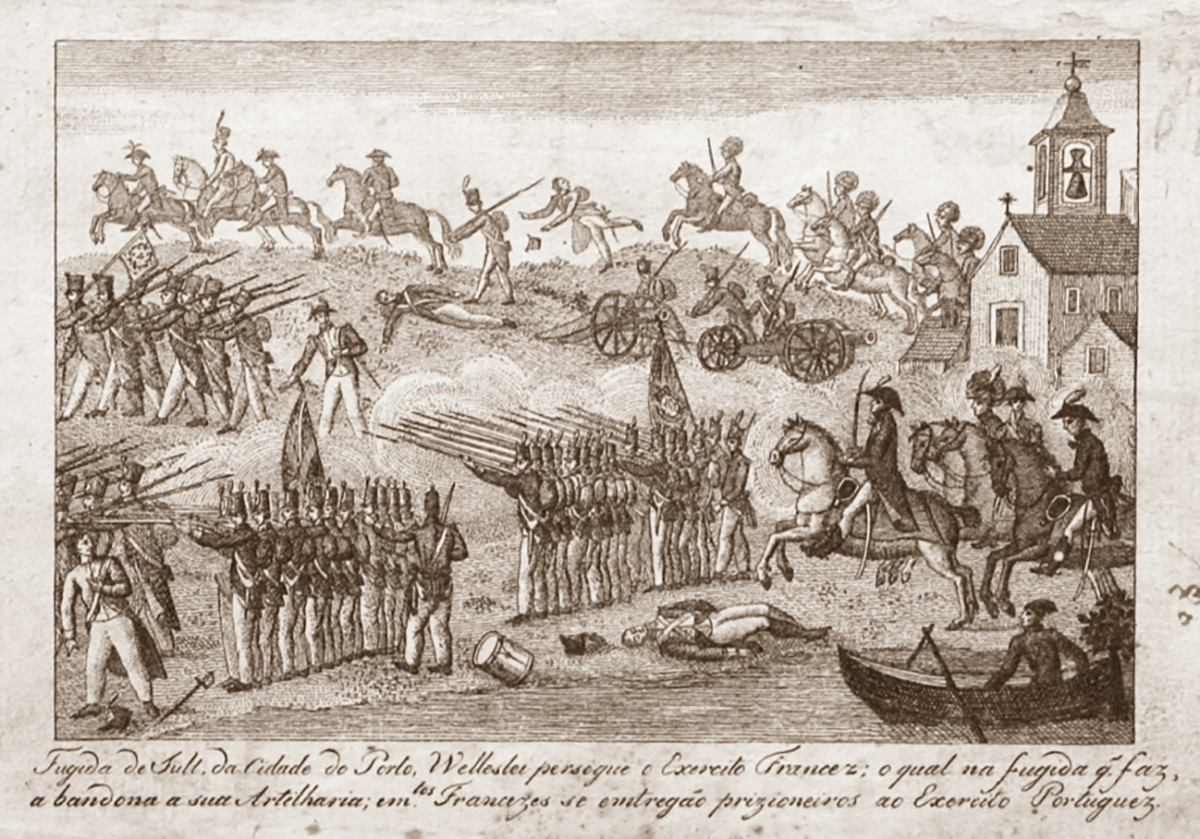 Fugida de Sult, da Cidade do Porto, Welleslei persegue o Exercito Francez; o qual na fugida q̃. faz,
a bandona a sua Artelharia; em.tos Francezes se entregão prizioneiros ao Exercito Portuguez.